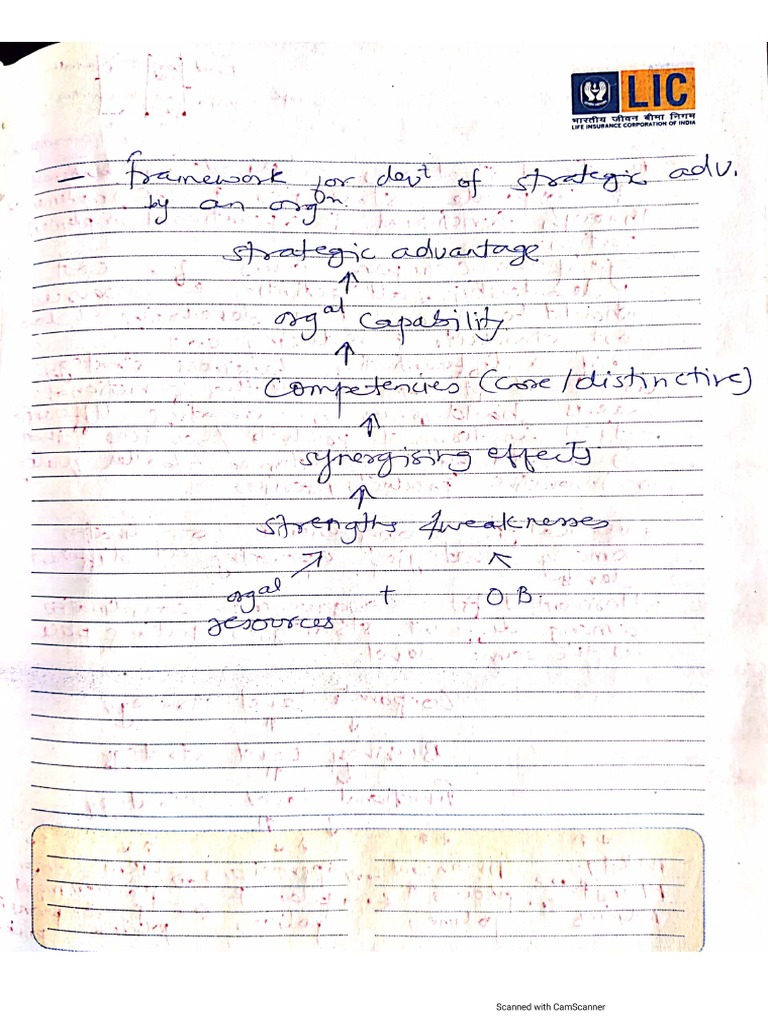 LIC
भारतीय जीवन बीमा निगम
LIFE INSURANCE CORPORATION OF INDIA
— framework for devt of strategic adv.
by an orgn.
strategic advantage
↑
orgal capability
↑
Competencies (core/distinctive)
↑
synergising effects
↑
strengths & weaknesses
↗ ↖
orgal + OB.
resources
Scanned with CamScanner